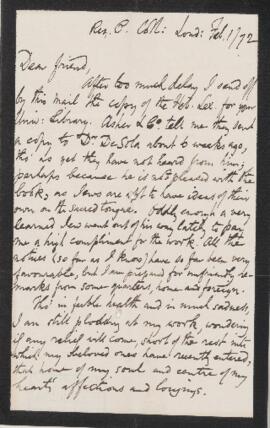 Res. P. Coll: Lond: Feb. 1/72
Dear friend,
After too much delay I send off
by this mail the copy of the Heb. Lex. for your
Univ: Library. Asher & Co. tell me they sent
a copy to Dr. De Sola about 6 weeks ago,
tho' as yet they have not heard from him;
perhaps because he is not pleased with the
book, as Jews are apt to have ideas of their
own on the sacred tongue. Oddly enough a very
learned Jew went out of his way lately to pay
me a high compliment for the work. All the
notices (so far as I know) have so far been very
favourable, but I am prepared for unfriendly re-
marks from some quarters, home and foreign.
Tho' in feeble health and in much sadness,
I am still plodding at my work, wondering
if any relief will come, short of the rest into
which my beloved ones have recently entered,
that home of my soul and centre of my
heart's affections and longings.